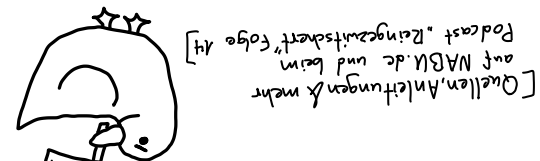 [Quellen, Anleitungen & mehr
auf NABU.de und beim
Podcast „Reingezwitschert" Folge 14]